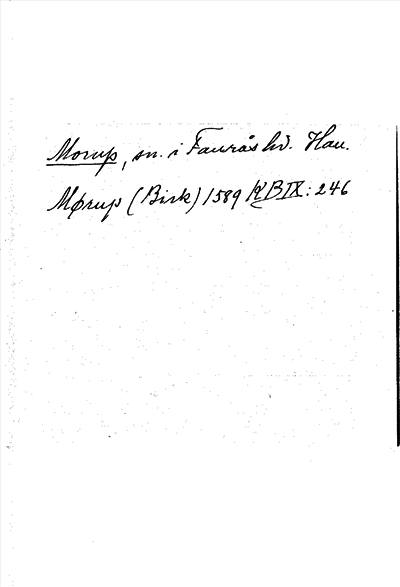 Morup, sn. i Faurås hd. Hall.
Mørup (Birk) 1589 KB IX: 246